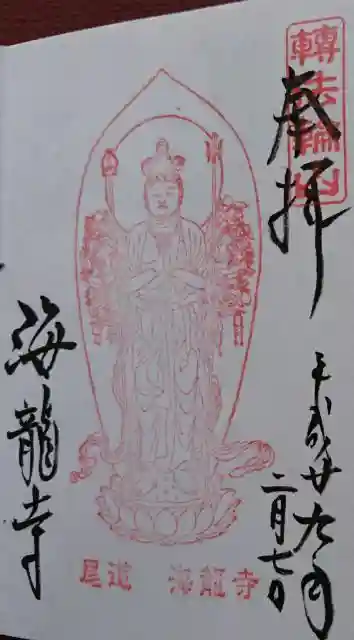 轉法輪山
奉拝
平成廿九年
二月七日
海龍寺
尾道 海龍寺